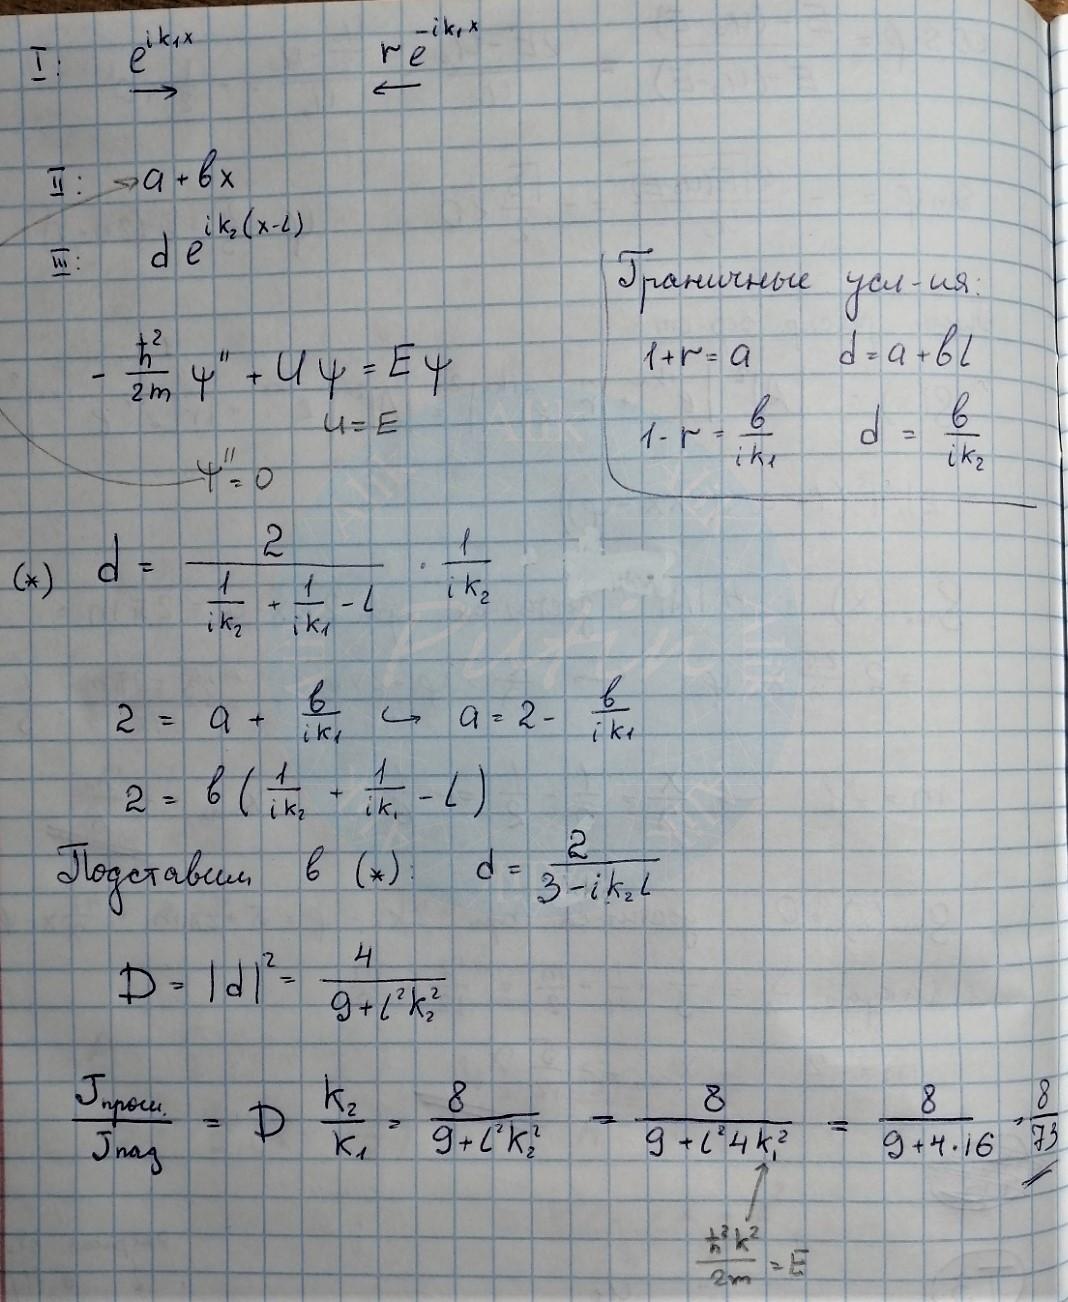 I: e^{ik₁x} r e^{-ik₁x}
→ ←
II: → a + bx
III: d e^{ik₂(x-l)}
Граничные усл-ия:
1+r = a d = a + bl
1-r = b/(ik₁) d = b/(ik₂)
- ħ²/2m ψ'' + Uψ = Eψ
U = E
ψ'' = 0
(*) d = 2/(1/(ik₂) + 1/(ik₁) - l) · 1/(ik₂)
2 = a + b/(ik₁) ↪ a = 2 - b/(ik₁)
2 = b(1/(ik₂) + 1/(ik₁) - l)
Подставим в (*): d = 2/(3 - ik₂l)
D = |d|² = 4/(9 + l²k₂²)
Jпрош./Jпад = D k₂/k₁ = 8/(9 + l²k₂²) = 8/(9 + l²4k₁²) = 8/(9 + 4·16) = 8/73
ħ²k²/2m = E